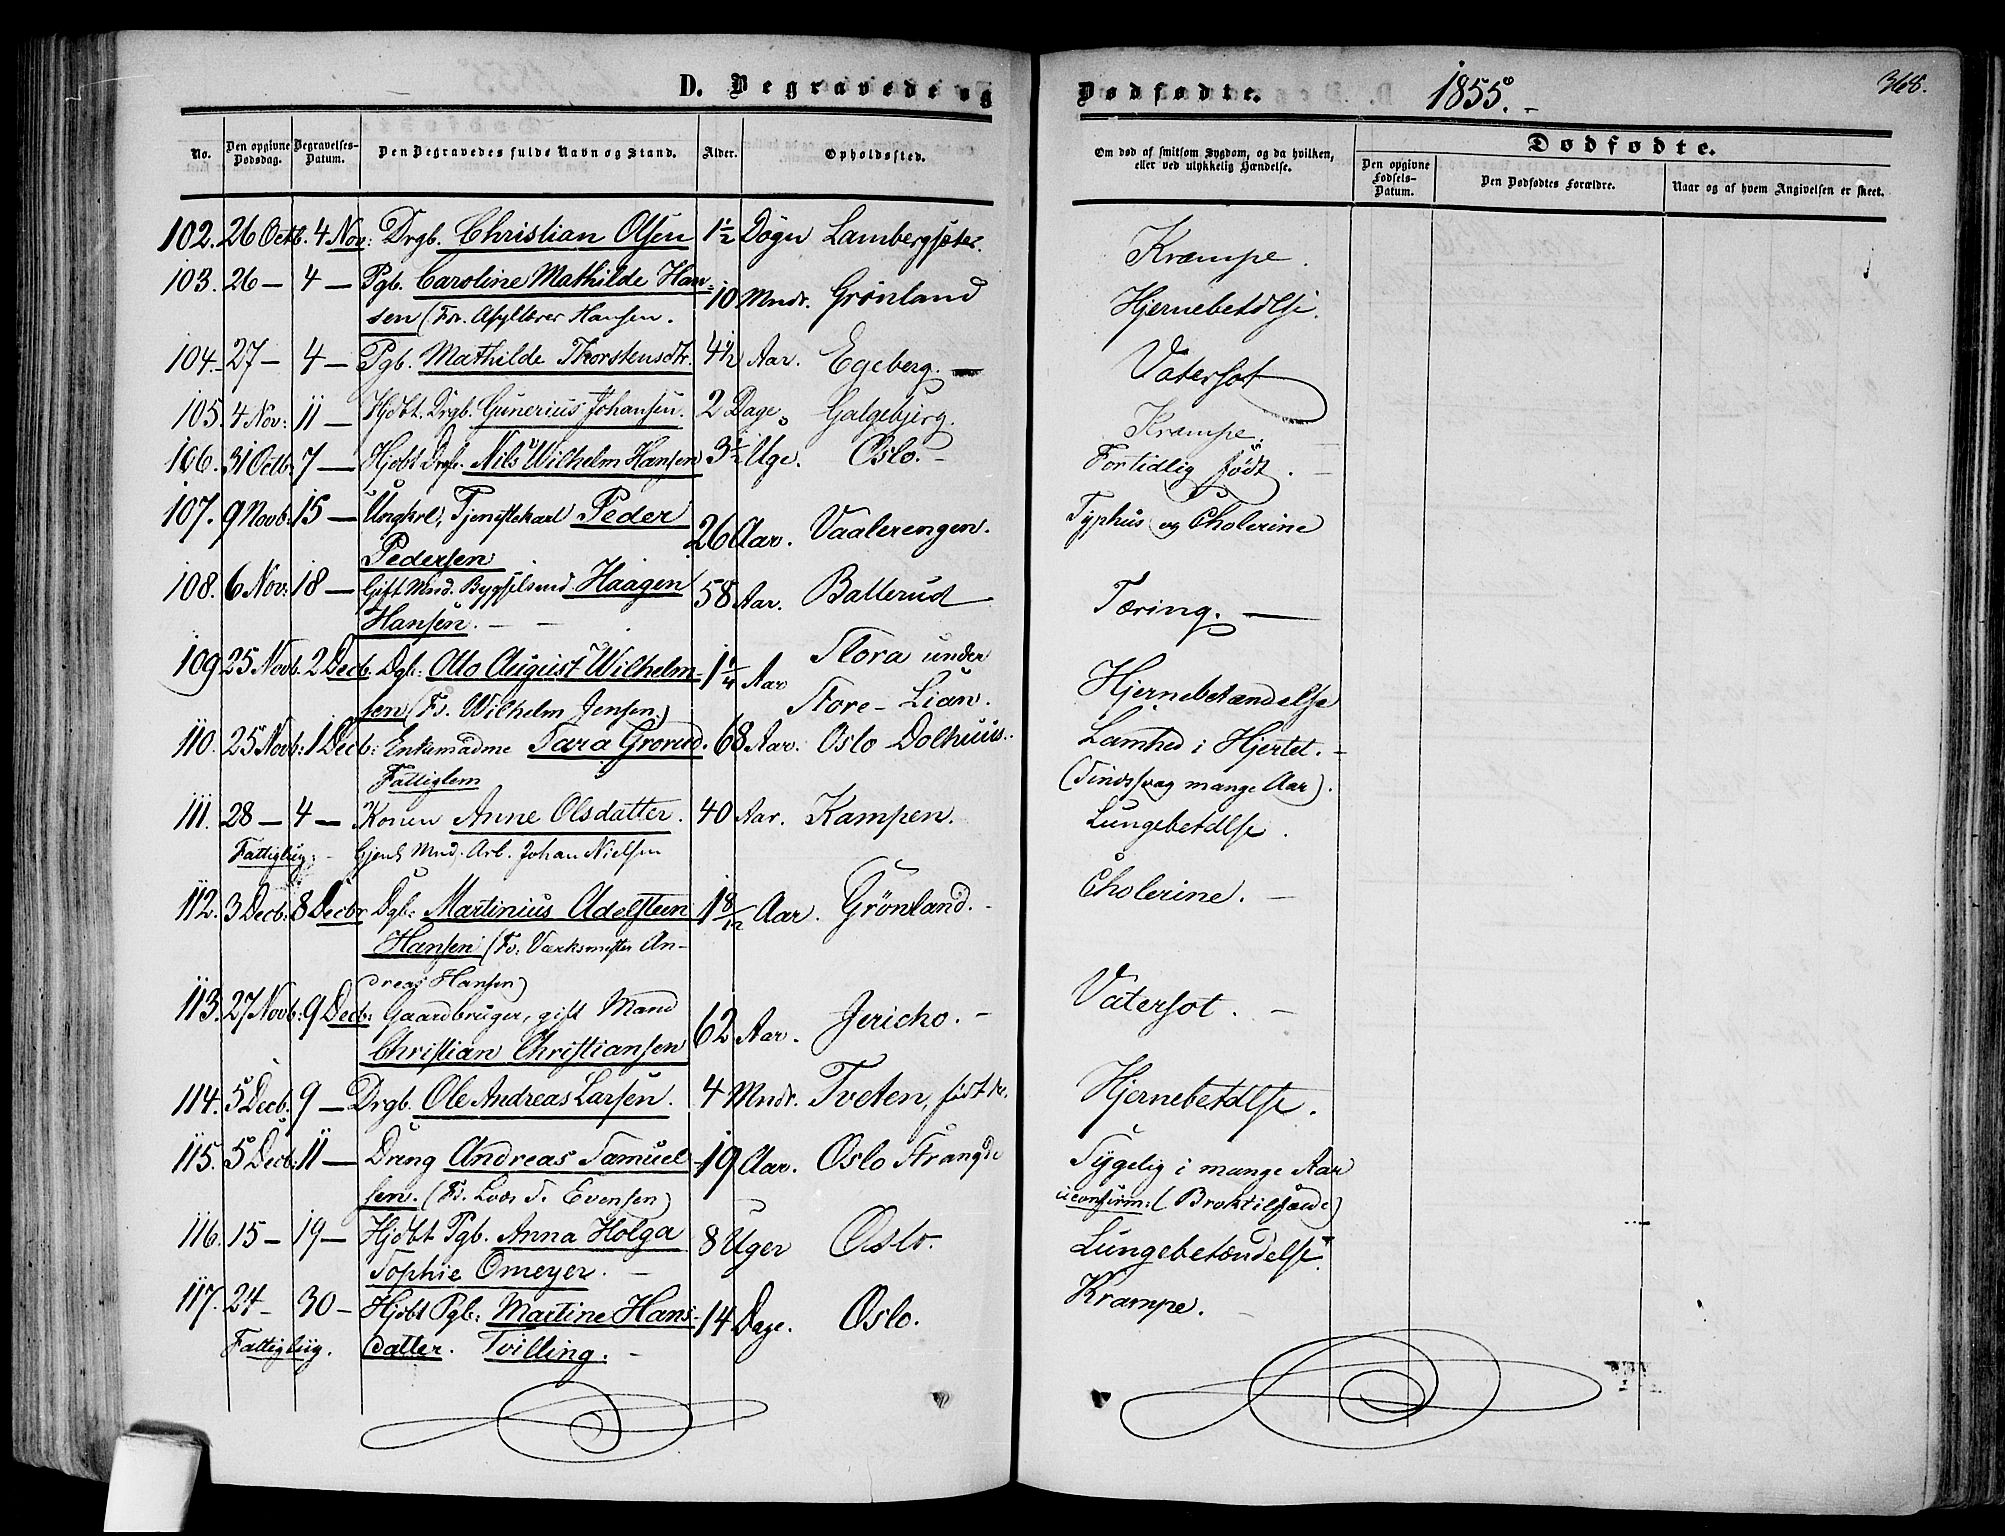 D. Begravede og Dødfødte. 1855. 368.
No. Den opgivne Dødsdag. Begravelses-Datum. Den Begravedes fulde Navn og Stand. Alder. Opholdssted. Om død af smitsom Sygdom, og da hvilken, eller ved ulykkelig Hændelse. Dødfødte.
Den opgivne Fødsels-Datum. Den Dødfødtes Forældre. Naar og af hvem Angivelsen er skeet.
102. 26 Octb. 4 Nov: Drgb. Christian Olsen 1½ Døgn Lambergsæter. Krampe.
103. 26 — 4 — Pgb. Caroline Mathilde Han- 10 Mndr. Grønland Hjernebetdlse.
sen (Fr. Asyllærer Hansen.
104. 27 — 4 — Pgb. Mathilde Thorstensdtr. 4½ Aar. Egeberg. — Vatersot
105. 4 Nov: 11 — Hjdbt. Drgb. Gunerius Johansen. 2 Dage. Galgebjerg. Krampe.
106. 31 Octb. 7 — Hjdbt Drgb. Nils Wilhelm Hansen 3½ Uge. Oslo. - Fortidlig født. —
107. 9 Novb: 15 — Ungkrl, Tjenestekarl Peder 26 Aar. Vaalerengen. Typhus og Cholerine
Pedersen
108. 6 Nov: 18 — Gift Mnd. Bygselsmd. Haagen 58 Aar. Ballerud Tæring. —
Hansen. — —
109 25 Novb. 2 Decb. Dgb: Otto August Wilhelm- 1¼ Aar Flora under
sen (Fr. Wilhelm Jensen) Store-Lian. Hjernebetændelse
110. 25 Novb: 1 Decb: Enkemadme Sara Grorud. 68 Aar. Oslo Dolhuus. Lamhed i Hjertet. -
Fattiglem (Sindssvag mange Aar).
111. 28 — 4 — Konen Anne Olsdatter. 40 Aar. Kampen. Lungebetdlse.
Fattiglig. - Gjenl. Mnd. Arb. Johan Nielsen
112. 3 Decb: 8 Decbr Dgb: Martinius Adelsteen 1 8/12 Aar. Grönland. - Cholerine. —
Hansen (Fr: Værksmester An-
dreas Hansen)
113. 27 Novb: 9 Decb: Gaardbruger, gift Mand 62 Aar. Jericho. - Vatersot. —
Christian Christiansen
114. 5 Decb. 9 — Drgb. Ole Andreas Larsen. 4 Mndr. Tveten, født Hjernebetdlse.
115. 5 Decb: 11 — Dreng Andreas Samuel- 19 Aar. Oslo Strangde Sygelig i mange Aar
sen. (Fr. Evensen) uconfirm: (Broktilfælde)
116. 15 — 19 — Hjdbt Pgb. Anna Holga 8 Uger Oslo. Lungebetændelse.
Sophie Omeyer. —
117. 24 - 30 - Hjdbt Pgb: Martine Hans- 14 Dage. Oslo. Krampe.
Fattiglig. datter. Tvilling. -